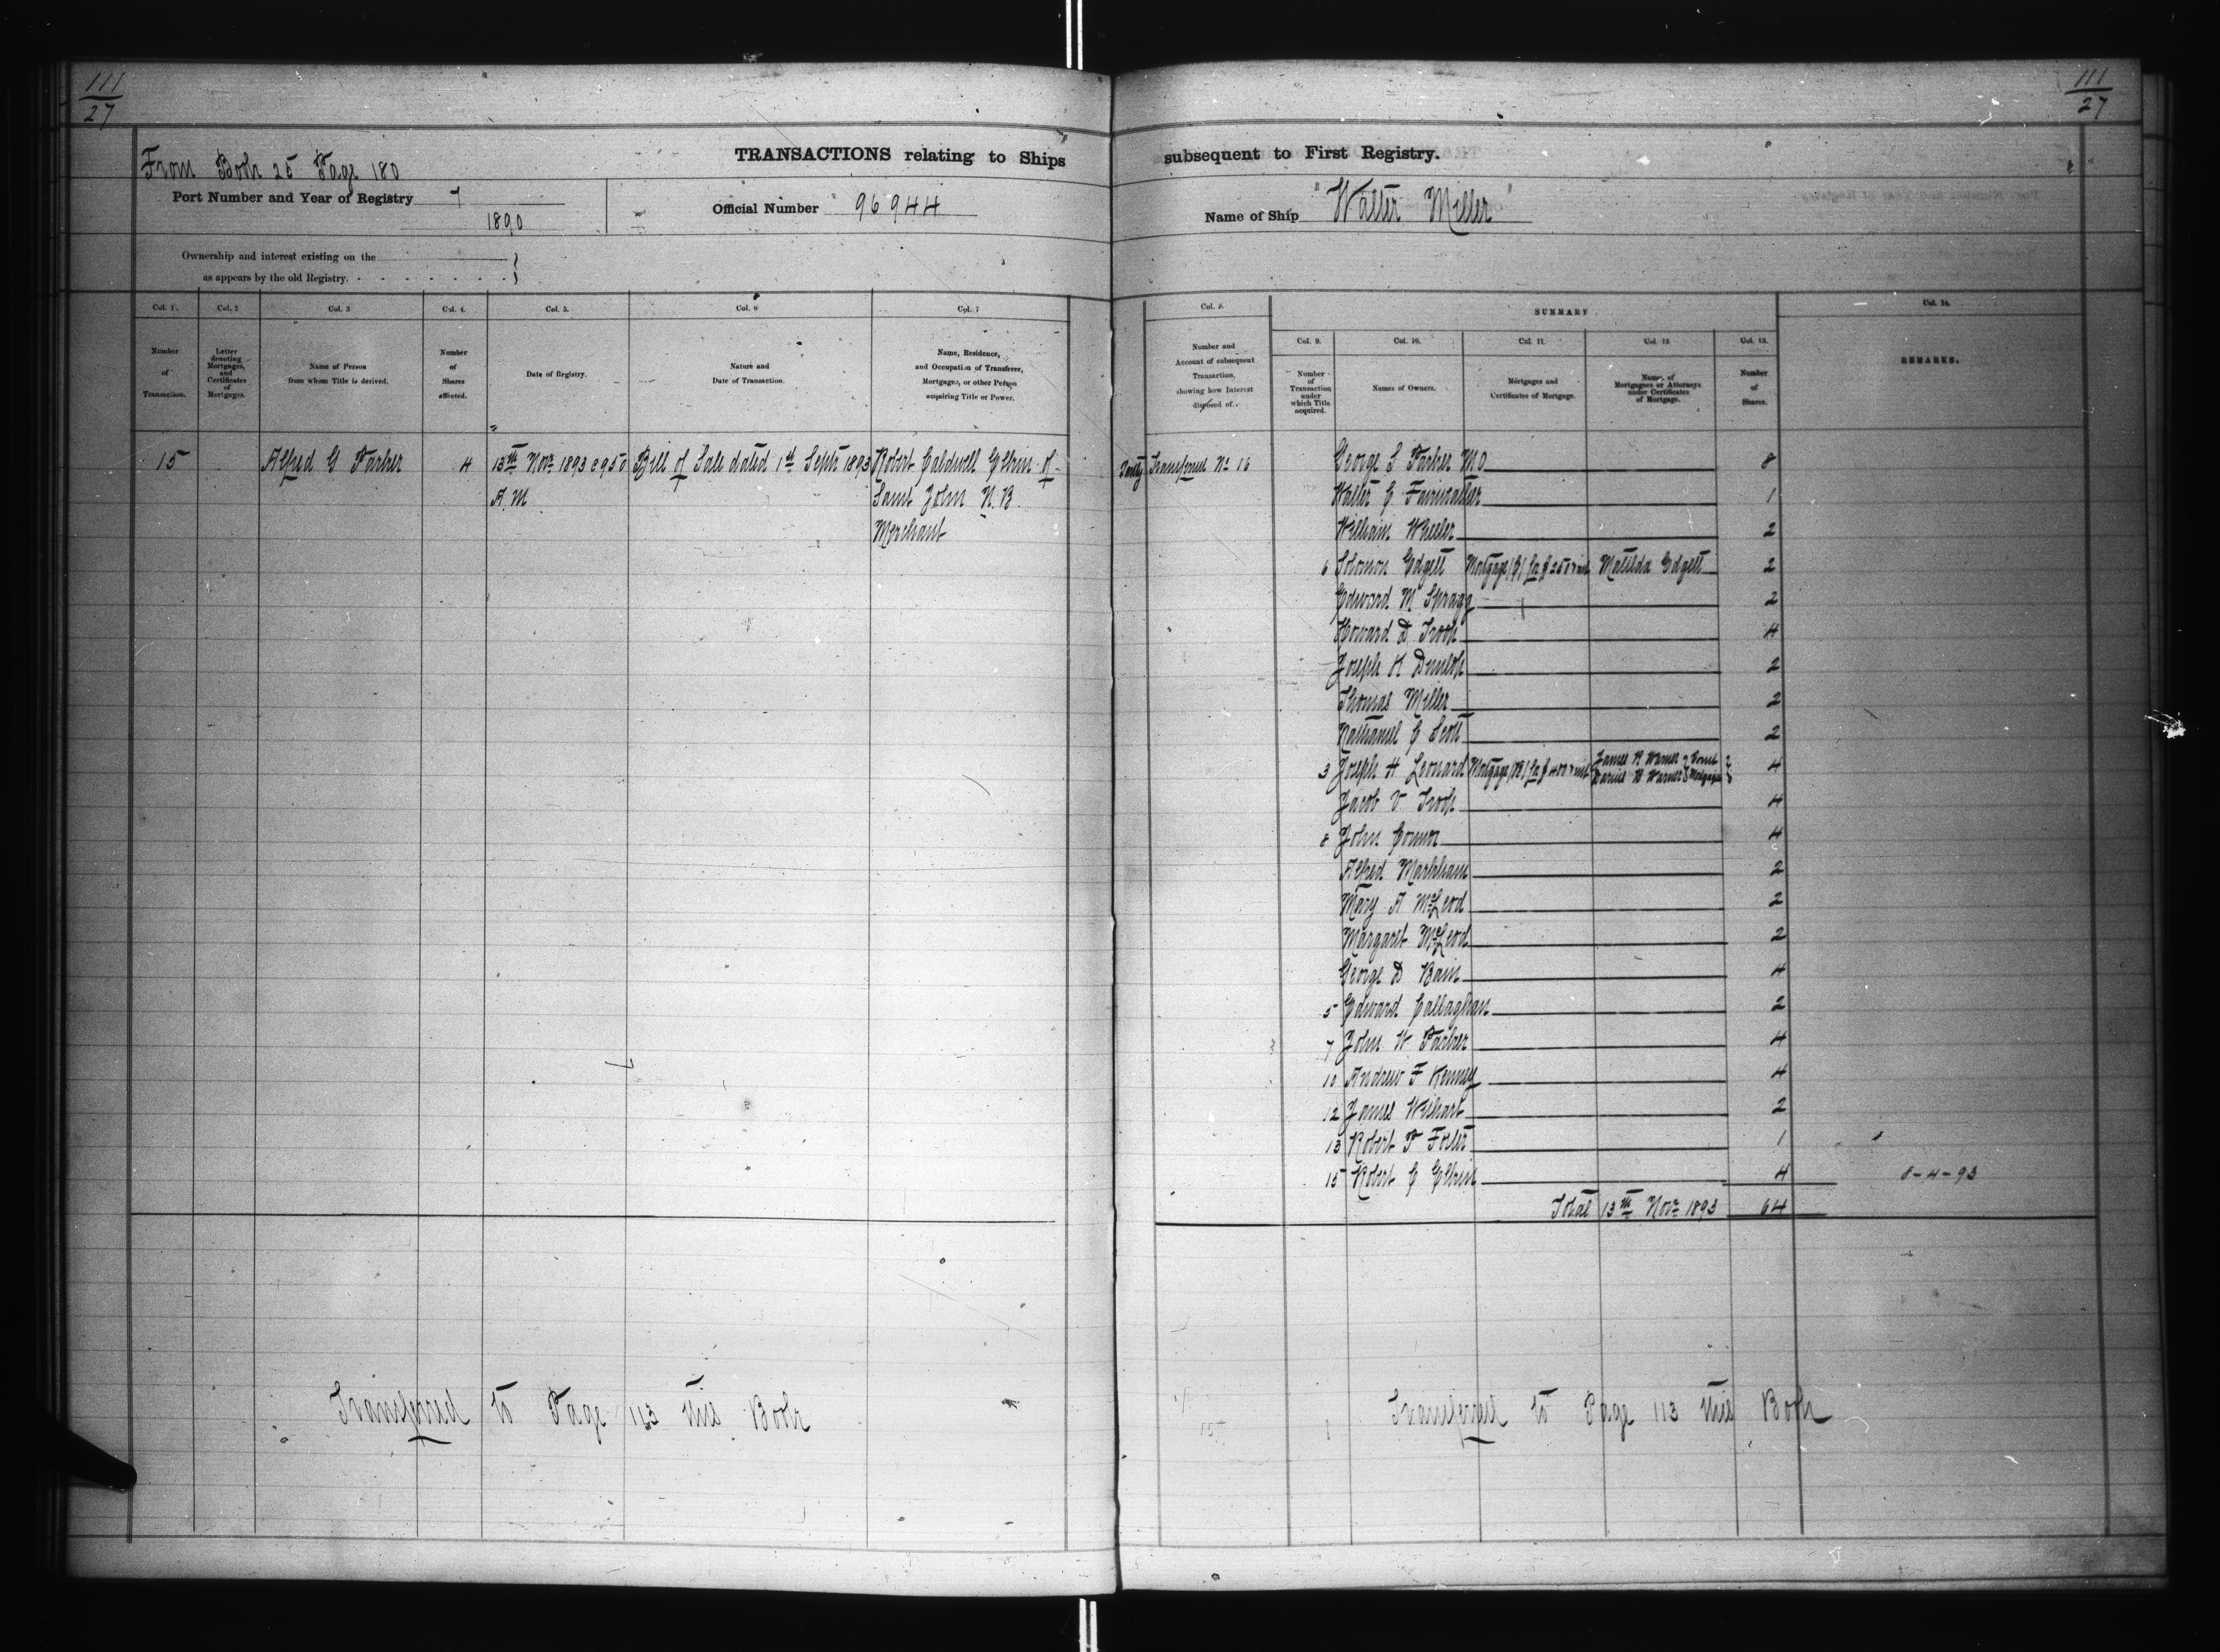 111
27
From Book 25 Page 180
TRANSACTIONS relating to Ships
Port Number and Year of Registry 7
1890
Official Number 96944
Ownership and interest existing on the
as appears by the old Registry.
Col. 1. Col. 2 Col. 3 Col. 4. Col. 5. Col. 6 Col. 7
Number of Transaction.
Letter denoting Mortgages, and Certificates of Mortgages.
Name of Person from whom Title is derived.
Number of Shares affected.
Date of Registry.
Nature and Date of Transaction.
Name, Residence, and Occupation of Transferee, Mortgagee, or other Person acquiring Title or Power.
15 Alfred G Parker 4 13th Novr 1893 @ 9.50 Bill of Sale dated 1st Septr 1893 Robert Caldwell Elkin of
A.M Saint John N.B.
Merchant
Transferred to Page 113 this Book
111
27
subsequent to First Registry.
Name of Ship "Walter Miller"
Col. 8.
SUMMARY
Col. 14.
Col. 9. Col. 10. Col. 11. Col. 12 Col. 13.
Number and Account of subsequent Transaction, showing how Interest disposed of.
Number of Transaction under which Title acquired.
Names of Owners.
Mortgages and Certificates of Mortgage.
Names of Mortgagees or Attorneys under Certificates of Mortgage.
Number of Shares.
REMARKS.
Transferred No 16 George S Parker MO 8
Walter C Fairweather 1
William Wheeler 2
6 Solomon Edgett Mortgage Matilda Edgett 2
Edward M Spragg 2
Howard D Troop 4
Joseph K Dunlop 2
Thomas Miller 2
Nathaniel C Scott 2
3 Joseph H Leonard Mortgage (B) James R Warner Joint 4
Darius B Warner Mortgagees
Jacob V Troop 4
8 John Connor 4
Alfred Markham 2
Mary A McLeod 2
Margaret McLeod 2
George D Bain 4
5 Edward Callaghan 2
7 John W Parker 4
10 Andrew F Kenney 4
12 James Wishart 2
13 Robert P Foster 1
15 Robert C Elkin 4 8-4-93
Total 13th Novr 1893 64
Transferred to Page 113 this Book